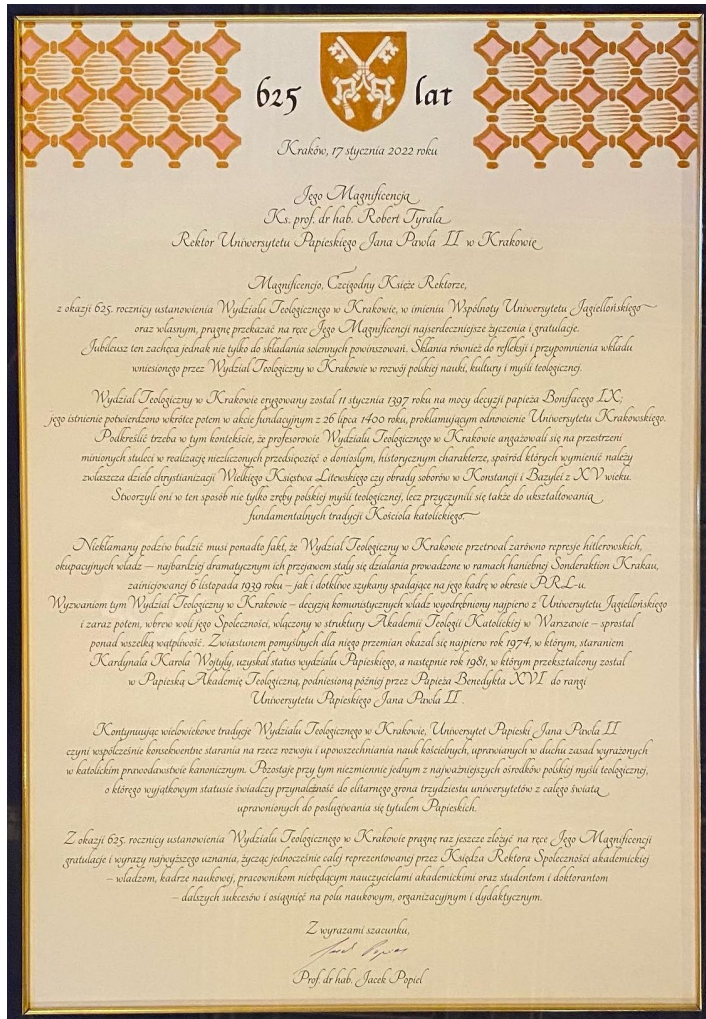 625 lat
Kraków, 17 stycznia 2022 roku
Jego Magnificencja
Ks. prof. dr hab. Robert Tyrała
Rektor Uniwersytetu Papieskiego Jana Pawła II w Krakowie
Magnificencjo, Czcigodny Księże Rektorze,
z okazji 625. rocznicy ustanowienia Wydziału Teologicznego w Krakowie, w imieniu Wspólnoty Uniwersytetu Jagiellońskiego
oraz własnym, pragnę przekazać na ręce Jego Magnificencji najserdeczniejsze życzenia i gratulacje.
Jubileusz ten zachęca jednak nie tylko do składania solennych powinszowań. Skłania również do refleksji i przypomnienia wkładu
wniesionego przez Wydział Teologiczny w Krakowie w rozwój polskiej nauki, kultury i myśli teologicznej.
Wydział Teologiczny w Krakowie erygowany został 11 stycznia 1397 roku na mocy decyzji papieża Bonifacego IX;
jego istnienie potwierdzono wkrótce potem w akcie fundacyjnym z 26 lipca 1400 roku, proklamującym odnowienie Uniwersytetu Krakowskiego.
Podkreślić trzeba w tym kontekście, że profesorowie Wydziału Teologicznego w Krakowie angażowali się na przestrzeni
minionych stuleci w realizację niezliczonych przedsięwzięć o doniosłym, historycznym charakterze, spośród których wymienić należy
zwłaszcza dzieło chrystianizacji Wielkiego Księstwa Litewskiego czy obrady soborów w Konstancji i Bazylei z XV wieku.
Stworzyli oni w ten sposób nie tylko zręby polskiej myśli teologicznej, lecz przyczynili się także do ukształtowania
fundamentalnych tradycji Kościoła katolickiego.
Niekłamany podziw budzić musi ponadto fakt, że Wydział Teologiczny w Krakowie przetrwał zarówno represje hitlerowskich,
okupacyjnych władz – najbardziej dramatycznym ich przejawem stały się działania prowadzone w ramach haniebnej Sonderaktion Krakau,
zainicjowanej 6 listopada 1939 roku – jak i dotkliwe szykany spadające na jego kadrę w okresie PRL-u.
Wyzwaniom tym Wydział Teologiczny w Krakowie – decyzją komunistycznych władz wyodrębniony najpierw z Uniwersytetu Jagiellońskiego
i zaraz potem, wbrew woli jego Społeczności, włączony w struktury Akademii Teologii Katolickiej w Warszawie – sprostał
ponad wszelką wątpliwość. Zwiastunem pomyślnych dla niego przemian okazał się najpierw rok 1974, w którym, staraniem
Kardynała Karola Wojtyły, uzyskał status wydziału Papieskiego, a następnie rok 1981, w którym przekształcony został
w Papieską Akademię Teologiczną, podniesioną później przez Papieża Benedykta XVI do rangi
Uniwersytetu Papieskiego Jana Pawła II.
Kontynuując wielowiekowe tradycje Wydziału Teologicznego w Krakowie, Uniwersytet Papieski Jana Pawła II
czyni współcześnie konsekwentne starania na rzecz rozwoju i upowszechniania nauk kościelnych, uprawianych w duchu zasad wyrażonych
w katolickim prawodawstwie kanonicznym. Pozostaje przy tym niezmiennie jednym z najważniejszych ośrodków polskiej myśli teologicznej,
o którego wyjątkowym statusie świadczy przynależność do elitarnego grona trzydziestu uniwersytetów z całego świata
uprawnionych do posługiwania się tytułem Papieskich.
Z okazji 625. rocznicy ustanowienia Wydziału Teologicznego w Krakowie pragnę raz jeszcze złożyć na ręce Jego Magnificencji
gratulacje i wyrazy najwyższego uznania, życząc jednocześnie całej reprezentowanej przez Księdza Rektora Społeczności akademickiej
– władzom, kadrze naukowej, pracownikom niebędącym nauczycielami akademickimi oraz studentom i doktorantom
– dalszych sukcesów i osiągnięć na polu naukowym, organizacyjnym i dydaktycznym.
Z wyrazami szacunku,
Jacek Popiel
Prof. dr hab. Jacek Popiel